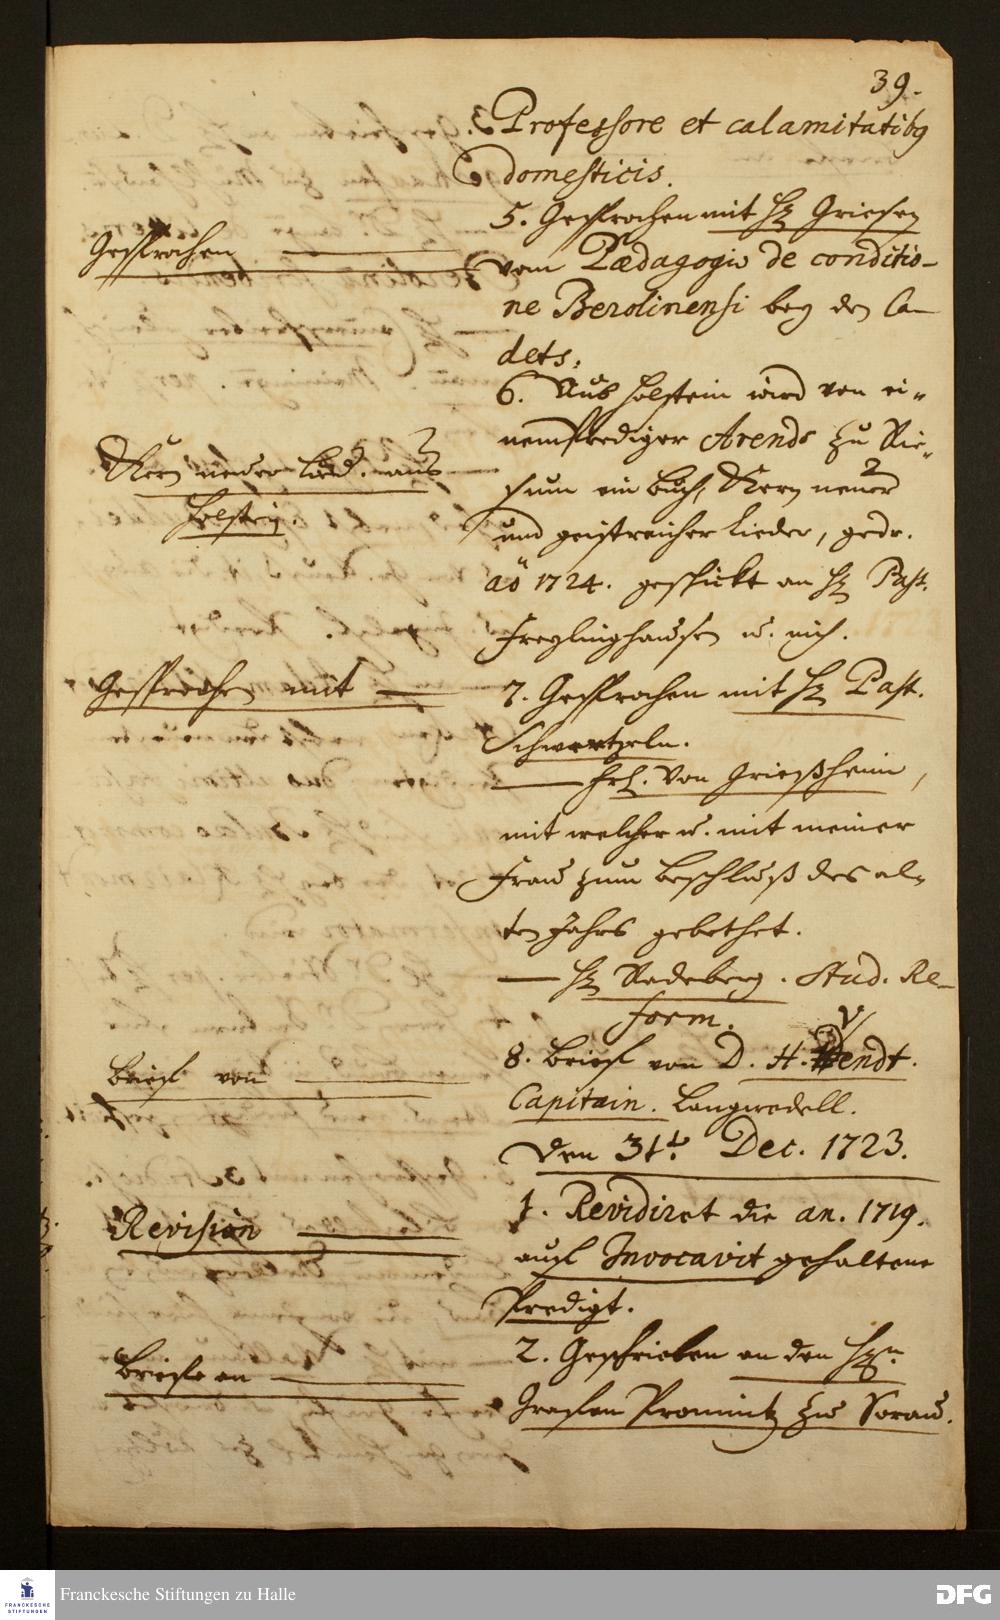 39.
Professore et calamitatibg
domesticis.
5. Gesprochen mit H. Griesen
Gesprochen
vom Paedagogio de conditio-
ne Berolinensi bey den Ca-
dets.
6. Aus Holstein wird von ei-
nem Prediger Arends zu Rie-
Kern neuer Lied. aus
sum ein Buch, Kern neuer
Holstein
und geistreicher Lieder, gedr.
ao 1724. geschickt an H. Past.
Freylinghausen u. mich.
Gesprochen mit
7. Gesprochen mit H. Past.
Schwartzeln.
Frl. von Grießheim,
mit welcher u. mit meiner
Frau zum Beschluß des al-
ten Jahrs gebethet.
H. Radeberg. Stud. Re-
form.
Brief von
8. Brief von D. H. Wendt.
Capitain. Langwedell.
Den 31t. Dec. 1723.
Revision
1. Revidiret die an. 1719.
auf Invocavit gehaltene
Predigt.
Briefe an
2. Geschrieben an den Hn.
Grafen Promnitz zu Sorau.
FRANCKESCHE STIFTUNGEN
Franckesche Stiftungen zu Halle
DFG